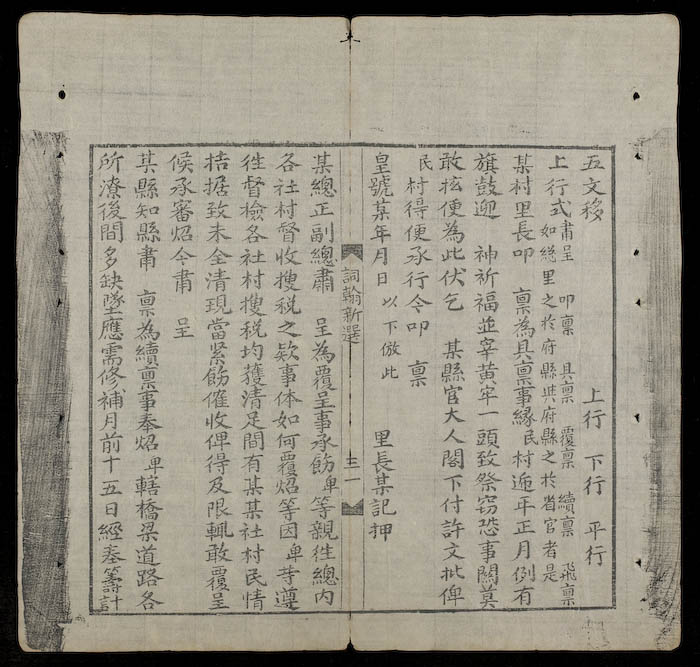 五文移 上行 下行 平行
上行式 肅呈 叩稟 具稟 覆稟 續稟 飛稟
如總里之於府縣與府縣之於省官者是
某村里長叩 稟為具稟事緣民村遞年正月例有
旗鼓迎 神祈福並宰黃牢一頭致祭窃恐事關莫
敢擅便為此伏乞 某縣官大人閣下付許文批俾
民村得便承行今叩 稟
皇號某年月日 以下倣此 里長某記押
詞翰新選
某總正副總肅 呈為覆呈事承飭卑等親徃總内
各社村督收搜税之欵事体如何覆炤等因卑等遵
徃督撿各社村搜税均獲清足間有某某社村民情
拮据致未全清現當緊飭催收俾得及限輒敢覆呈
候承審炤今肅 呈
某縣知縣肅 稟為續稟事奉炤卑轄橋梁道路各
所潦後間多缺墜應需修補月前十五日經奉籌計